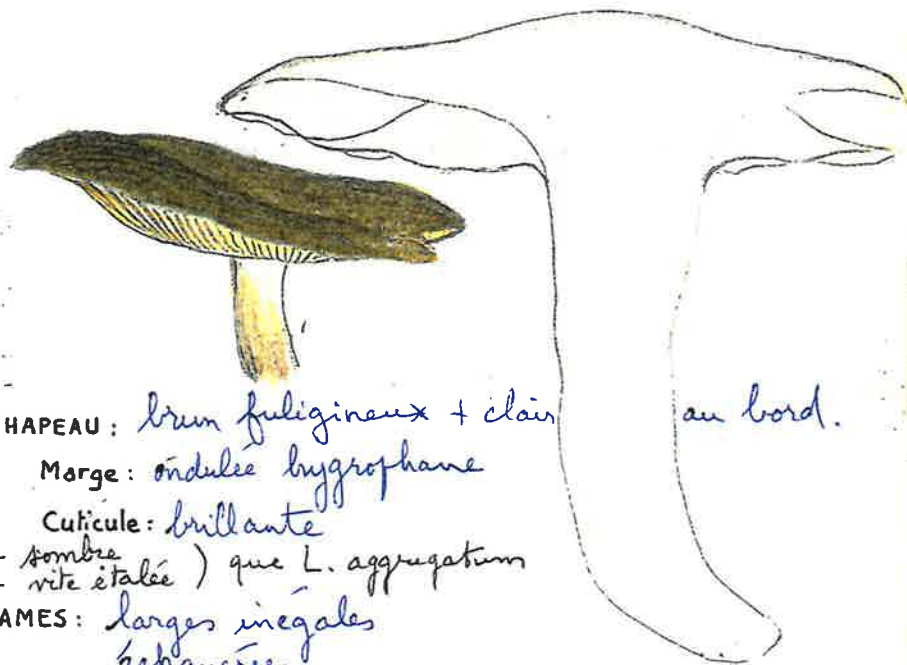 HAPEAU : brun fuligineux + clair au bord.
Marge : ondulée hygrophane
Cuticule : brillante
sombre
vite étalée ) que L. aggregatum
AMES : larges inégales
échancrées